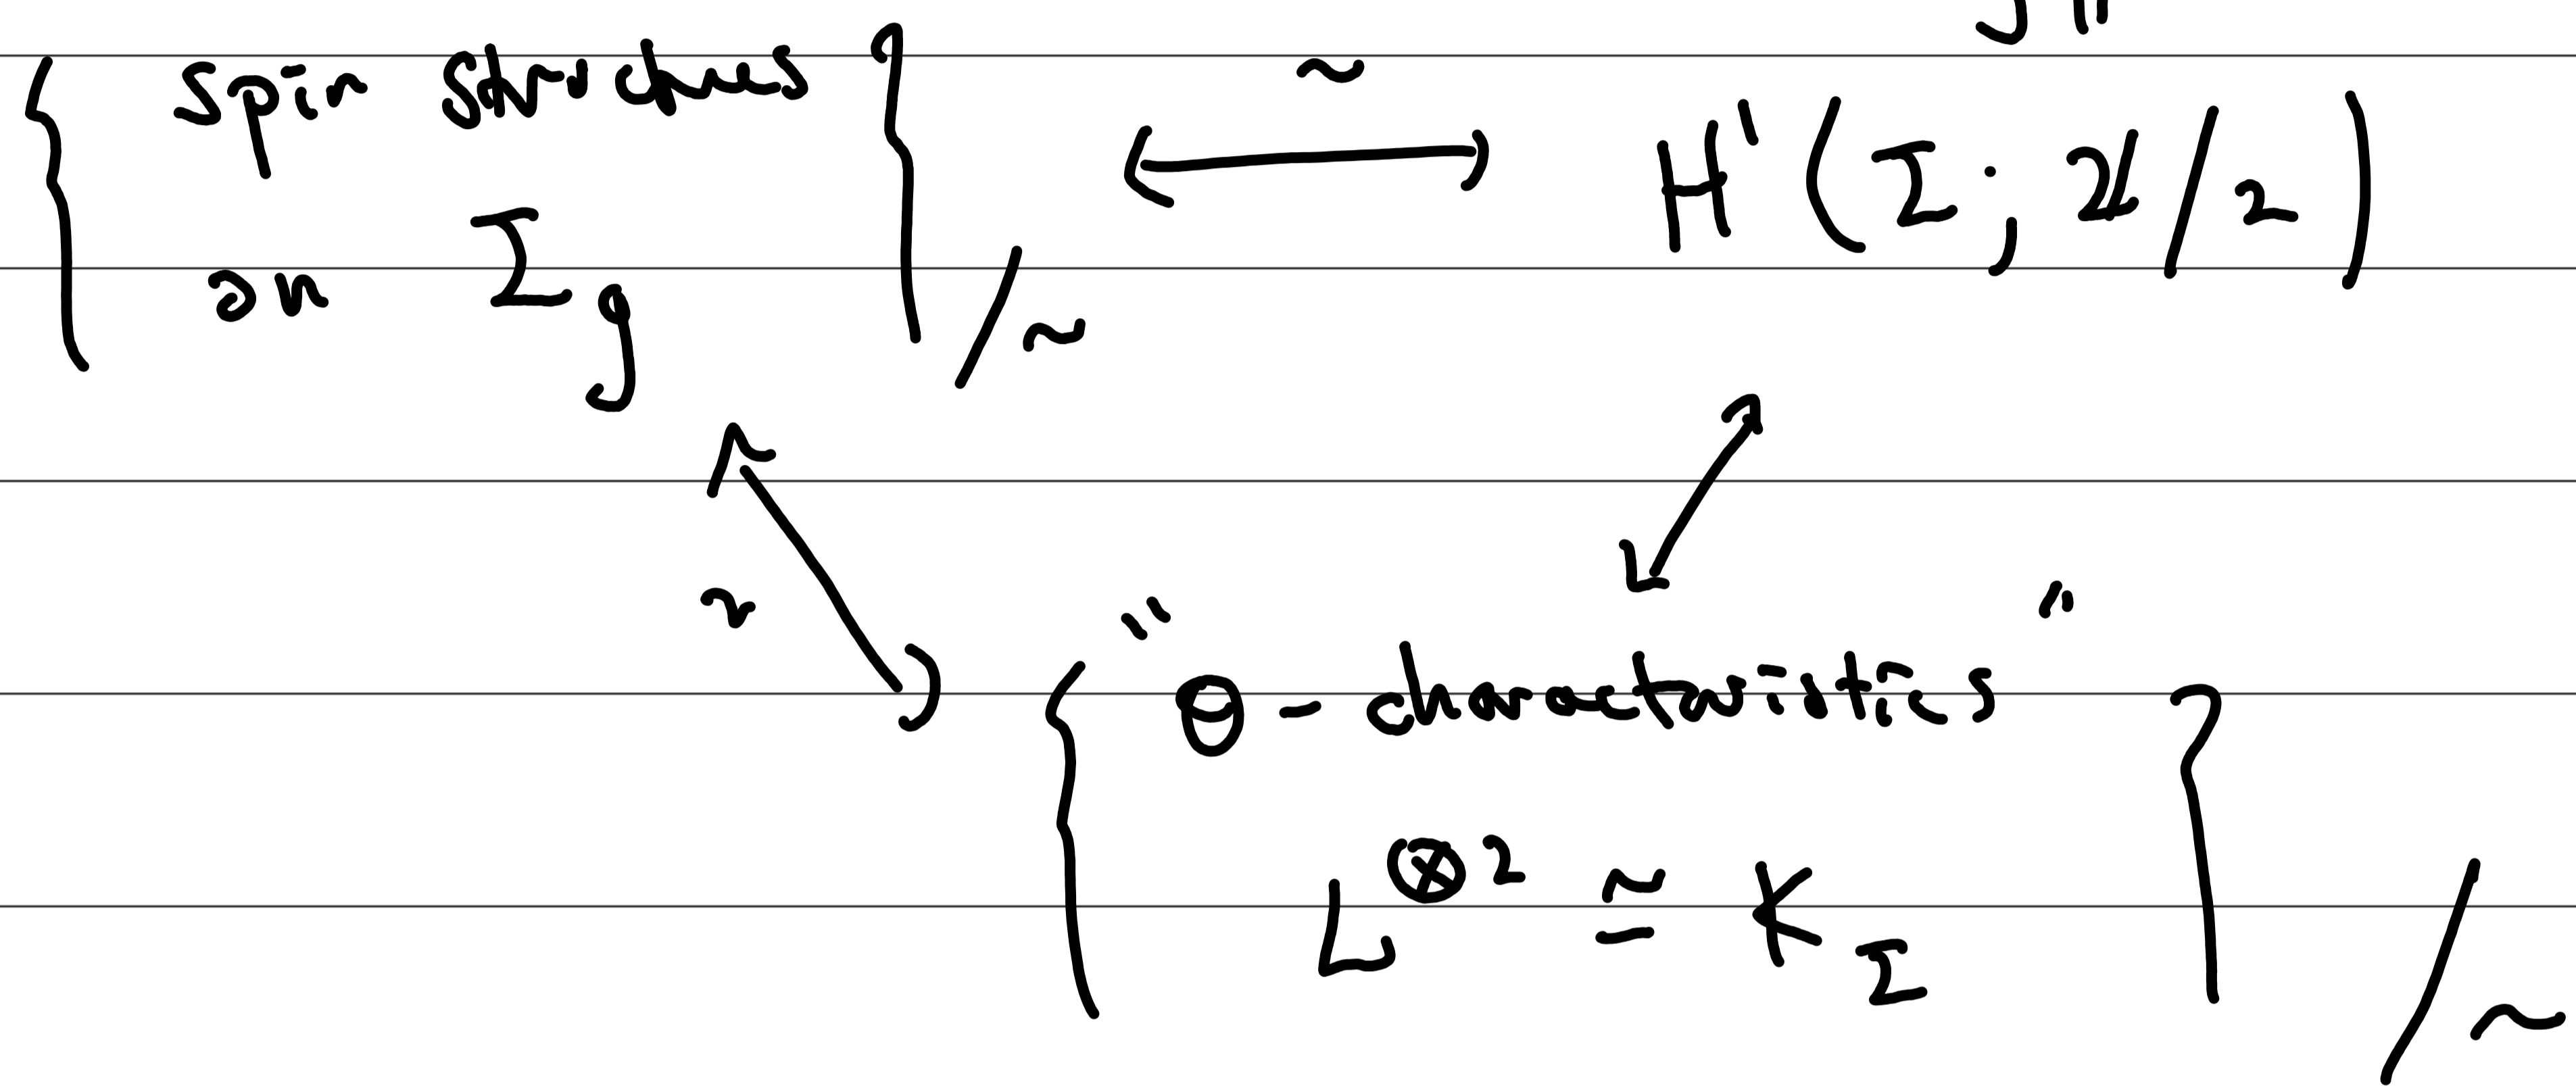 { spin structures } / ~ ⟷ ~ H¹(Σ; ℤ/2)
on Σ_g
~
{ "Θ - characteristics" } / ~
L^{⊗2} ≅ K_Σ